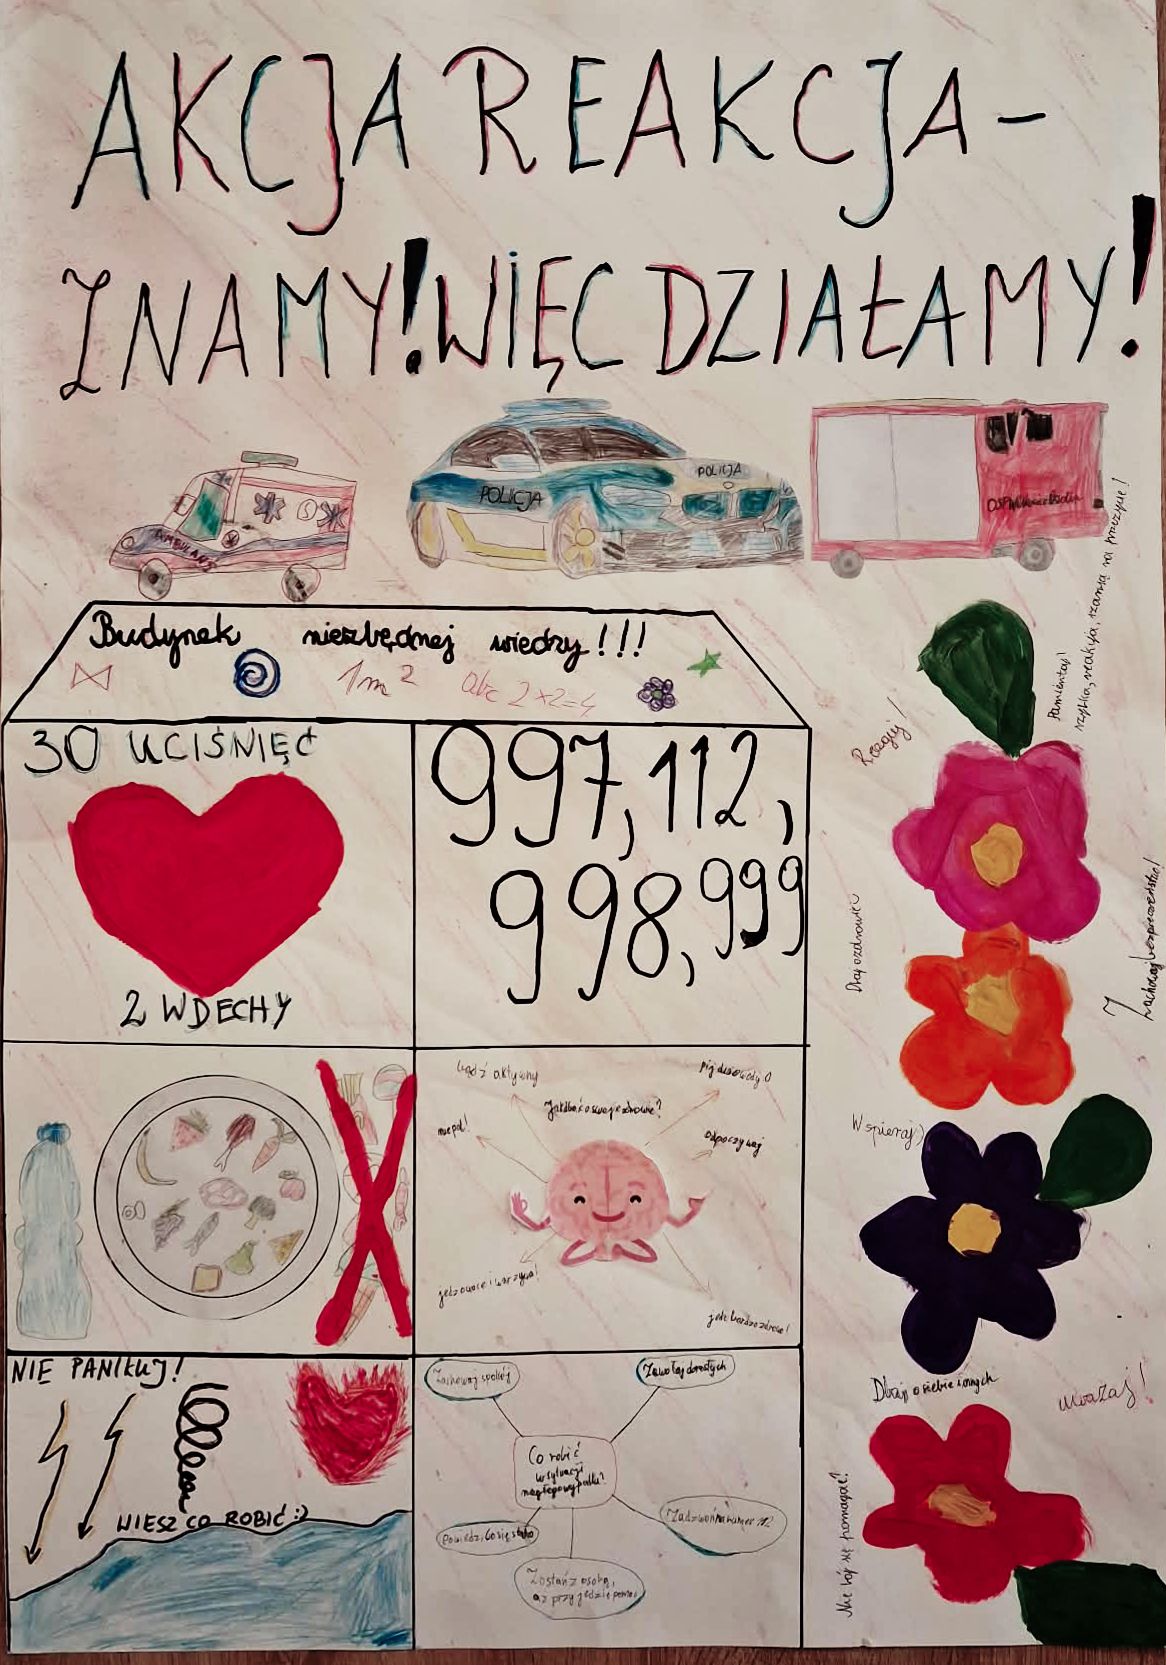 AKCJA REAKCJA -
ZNAMY! WIĘC DZIAŁAMY!
AMBULANS
POLICJA
POLICJA
OSP
Budynek niezbędnej wiedzy!!!
1m² abc 2x2=4
30 UCIŚNIĘĆ
2 WDECHY
997, 112,
998, 999
bądź aktywny
pij dużo wody
Jak dbać o swoje zdrowie?
nie pal!
odpoczywaj
jedz owoce i warzywa!
jedz bardzo zdrowo!
NIE PANIKUJ!
WIESZ CO ROBIĆ :)
Zachowaj spokój
Zawołaj dorosłych
Co robić
w sytuacji
nagłego wypadku?
Powiedz, co się stało
Zadzwoń na numer 112
Zostań z osobą,
aż przyjedzie pomoc
Reaguj!
Pamientaj!
szybka reakcja, szansą na przeżycie!
Dbaj o zdrowie
Zachowaj bezpieczeństwo!
Wspieraj :)
Dbaj o siebie i innych
uważaj!
Nie bój się pomagać!